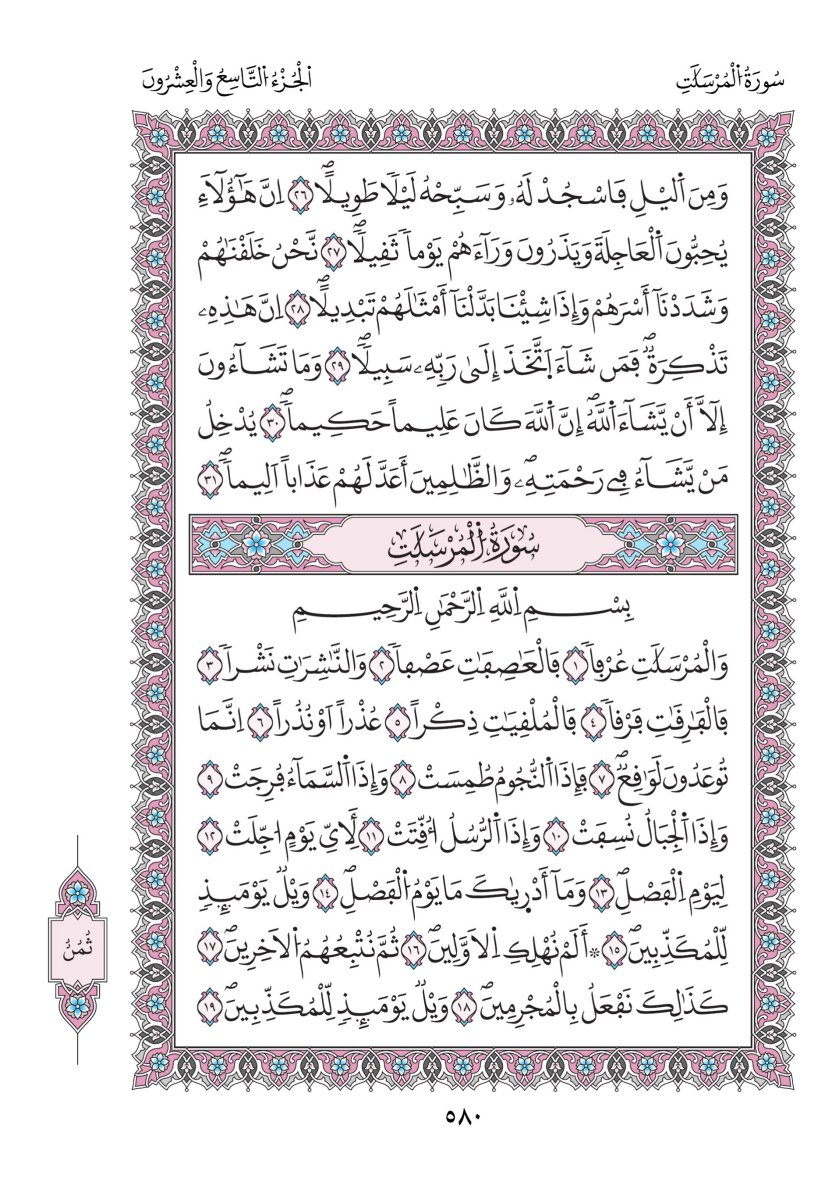 سُورَةُ الْمُرْسَلَٰتِ
الْجُزْءُ التَّاسِعُ وَالْعِشْرُونَ
وَمِنَ اَ۬ليْلِ فَاسْجُدْ لَهُۥ وَسَبِّحْهُ لَيْلاٗ طَوِيلاًۖ ٢٦ اِنَّ هَٰٓؤُلَآءِ
يُحِبُّونَ اَ۬لْعَاجِلَةَ وَيَذَرُونَ وَرَآءَهُمْ يَوْماٗ ثَقِيلاٗۖ ٢٧ نَّحْنُ خَلَقْنَٰهُمْ
وَشَدَدْنَآ أَسْرَهُمْ وَإِذَا شِئْنَا بَدَّلْنَآ أَمْثَٰلَهُمْ تَبْدِيلاًۖ ٢٨ اِنَّ هَٰذِهِۦ
تَذْكِرَةٞۖ فَمَن شَآءَ اَ۪تَّخَذَ إِلَىٰ رَبِّهِۦ سَبِيلاٗۖ ٢٩ وَمَا تَشَآءُونَ
إِلَّآ أَنْ يَّشَآءَ اَ۬للَّهُۖ إِنَّ اَ۬للَّهَ كَانَ عَلِيماً حَكِيماٗۖ ٣٠ يُدْخِلُ
مَنْ يَّشَآءُ فِے رَحْمَتِهِۦۖ وَالظَّٰلِمِينَ أَعَدَّ لَهُمْ عَذَاباً اَلِيماٗۖ ٣١
سُورَةُ الْمُرْسَلَٰتِ
بِسْمِ اِ۬للَّهِ اِ۬لرَّحْمَٰنِ اِ۬لرَّحِيمِ
وَالْمُرْسَلَٰتِ عُرْفاٗ ١ فَالْعَٰصِفَٰتِ عَصْفاٗ ٢ وَالنَّٰشِرَٰتِ نَشْراٗ ٣
فَالْفَٰرِقَٰتِ فَرْقاٗ ٤ فَالْمُلْقِيَٰتِ ذِكْراً ٥ عُذْراً اَوْ نُذُراً ٦ اِنَّمَا
تُوعَدُونَ لَوَٰقِعٞۖ ٧ فَإِذَا اَ۬لنُّجُومُ طُمِسَتْ ٨ وَإِذَا اَ۬لسَّمَآءُ فُرِجَتْ ٩
وَإِذَا اَ۬لْجِبَالُ نُسِفَتْ ١٠ وَإِذَا اَ۬لرُّسُلُ أُقِّتَتْ ١١ لِأَيِّ يَوْمٍ اُجِّلَتْ ١٢
لِيَوْمِ اِ۬لْفَصْلِۖ ١٣ وَمَآ أَدْر۪ىٰكَ مَا يَوْمُ اُ۬لْفَصْلِۖ ١٤ وَيْلٞ يَوْمَئِذٖ
لِّلْمُكَذِّبِينَۖ ١٥ ۞ أَلَمْ نُهْلِكِ اِ۬لَاوَّلِينَۖ ١٦ ثُمَّ نُتْبِعُهُمُ اُ۬لَاخِرِينَۖ ١٧
كَذَٰلِكَ نَفْعَلُ بِالْمُجْرِمِينَۖ ١٨ وَيْلٞ يَوْمَئِذٖ لِّلْمُكَذِّبِينَۖ ١٩
ثُمُنُ
٥٨٠